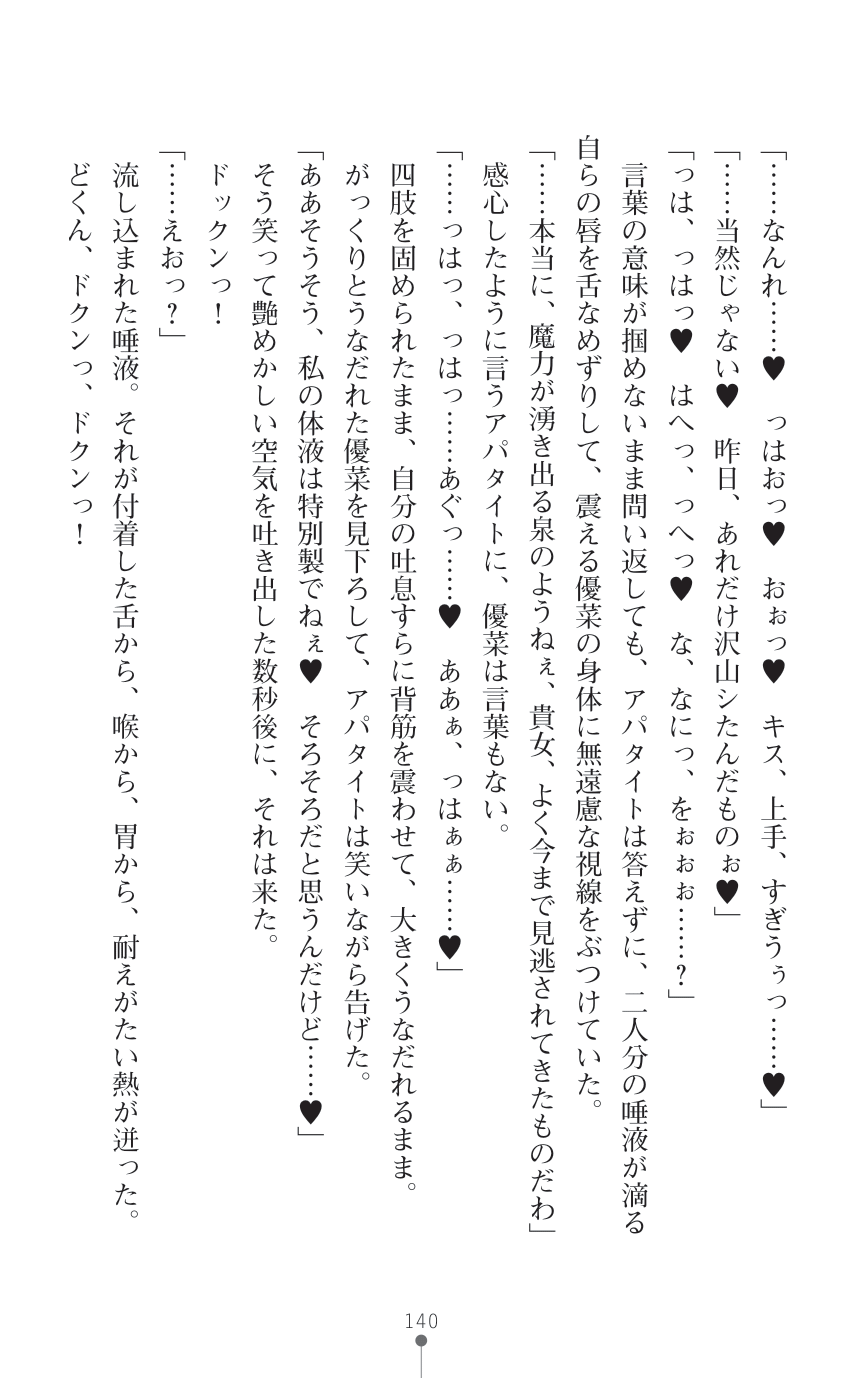 「……なんれ……♥　っはおっ♥　おぉっ♥　キス、上手、すぎうぅっ……♥」
「……当然じゃない♥　昨日、あれだけ沢山シたんだものぉ♥」
「っは、っはっ♥　はへっ、っへっ♥　な、なにっ、をぉぉぉ……？」
　言葉の意味が掴めないまま問い返しても、アパタイトは答えずに、二人分の唾液が滴る
自らの唇を舌なめずりして、震える優菜の身体に無遠慮な視線をぶつけていた。
「……本当に、魔力が湧き出る泉のようねぇ、貴女、よく今まで見逃されてきたものだわ」
　感心したように言うアパタイトに、優菜は言葉もない。
「……っはっ、っはっ……あぐっ……♥　ああぁ、っはぁぁ……♥」
　四肢を固められたまま、自分の吐息すらに背筋を震わせて、大きくうなだれるまま。
　がっくりとうなだれた優菜を見下ろして、アパタイトは笑いながら告げた。
「ああそうそう、私の体液は特別製でねぇ♥　そろそろだと思うんだけど……♥」
　そう笑って艶めかしい空気を吐き出した数秒後に、それは来た。
　ドックンっ！
「……えおっ？」
　流し込まれた唾液。それが付着した舌から、喉から、胃から、耐えがたい熱が迸った。
　どくん、ドクンっ、ドクンっ！
140